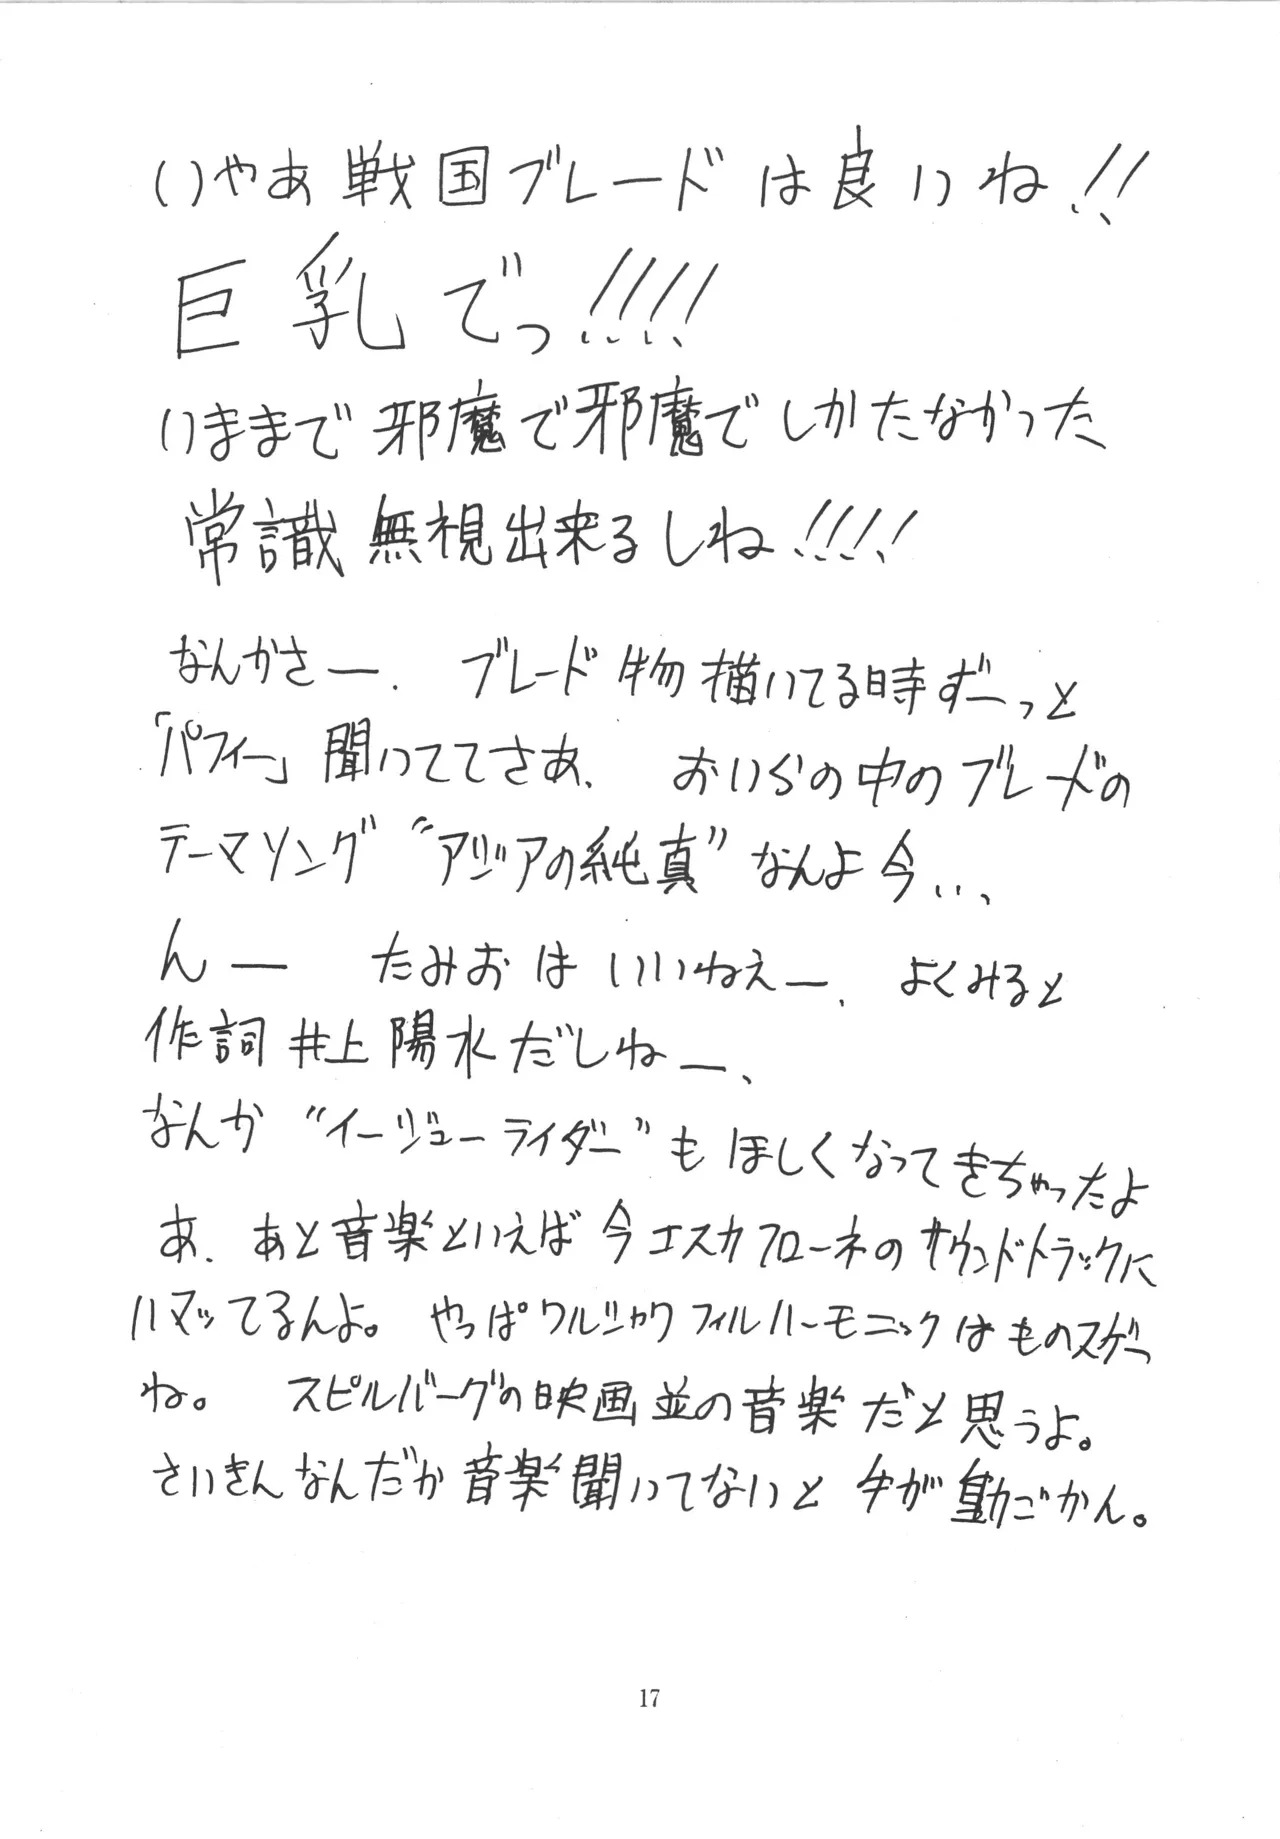 いやあ戦国ブレードは良いね!!
巨乳でっ!!!!
いままで邪魔で邪魔でしかたなかった
常識無視出来るしね!!!!
なんかさー、ブレード物描いてる時ずーっと
「パフィー」聞いててさあ、おいらの中のブレードの
テーマソング“アジアの純真”なんよ今...、
んー たみおはいいねぇー、よくみると
作詞井上陽水だしねー、
なんか“イージューライダー”もほしくなってきちゃったよ
あ、あと音楽といえば今エスカフローネのサウンドトラックに
ハマッてるんよ。やっぱワルシャワフィルハーモニックはものスゲー
ね。スピルバーグの映画並の音楽だと思うよ。
さいきんなんだか音楽聞いてないと手が動ごかん。
17